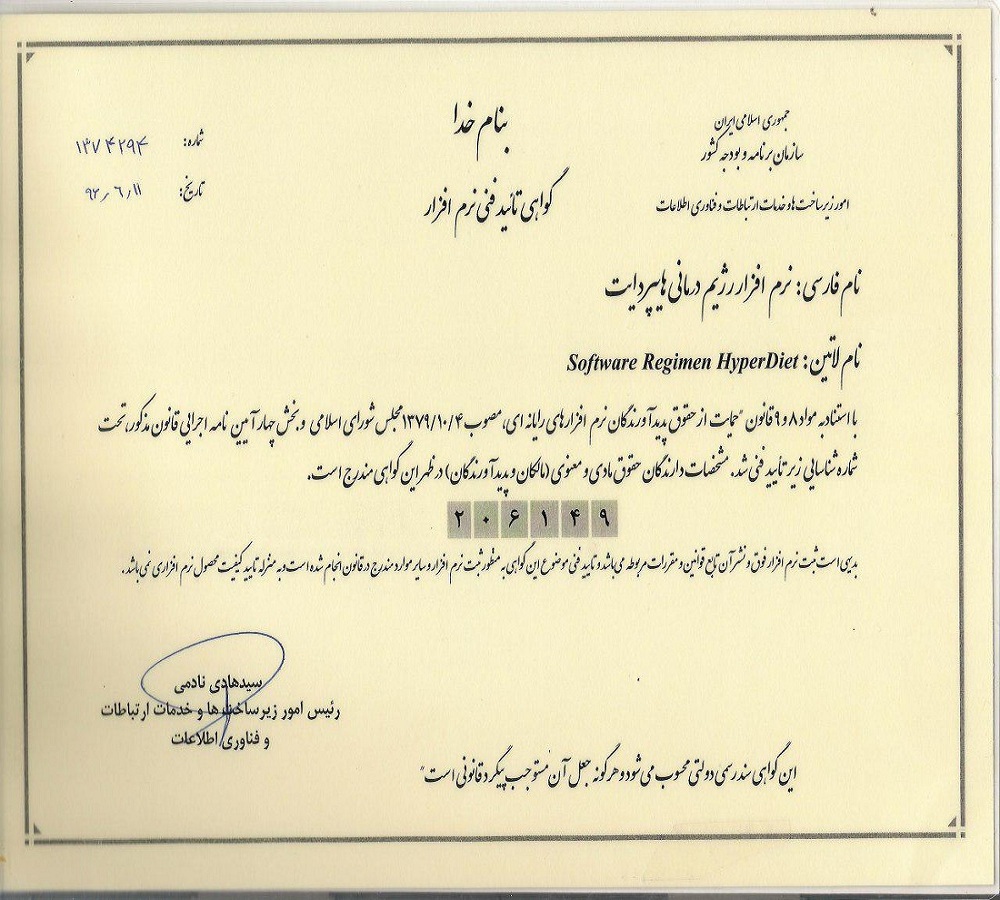 بنام خدا
جمهوری اسلامی ایران
سازمان برنامه و بودجه کشور
امور زیرساخت ها و خدمات ارتباطات و فناوری اطلاعات
گواهی تائید فنی نرم افزار
شماره: ۱۳۷۴۲۹۴
تاریخ: ۹۳٫۶٫۱۱
نام فارسی: نرم افزار رژیم درمانی هایپردایت
نام لاتین: Software Regimen HyperDiet
با استناد به مواد ۸ و ۹ قانون "حمایت از حقوق پدیدآورندگان نرم افزارهای رایانه ای، مصوب ۱۳۷۹/۱۰/۴ مجلس شورای اسلامی و بخش چهار آیین نامه اجرایی قانون مذکور، تحت
شماره شناسایی زیر تأیید فنی شد. مشخصات دارندگان حقوق مادی و معنوی (مالکان و پدیدآورندگان) در ظهر این گواهی مندرج است.
۲۰۶۱۴۹
بدیهی است ثبت نرم افزار فوق و نشر آن تابع قوانین و مقررات مربوطه می باشد و تایید فنی موضوع این گواهی به منظور ثبت نرم افزار و سایر موارد مندرج در قانون انجام شده است و به منزله تایید کیفیت محصول نرم افزاری نمی باشد.
سیدهادی نادمی
رئیس امور زیرساخت ها و خدمات ارتباطات
و فناوری اطلاعات
این گواهی سند رسمی دولتی محسوب می شود و هرگونه جعل آن مستوجب پیگرد قانونی است"